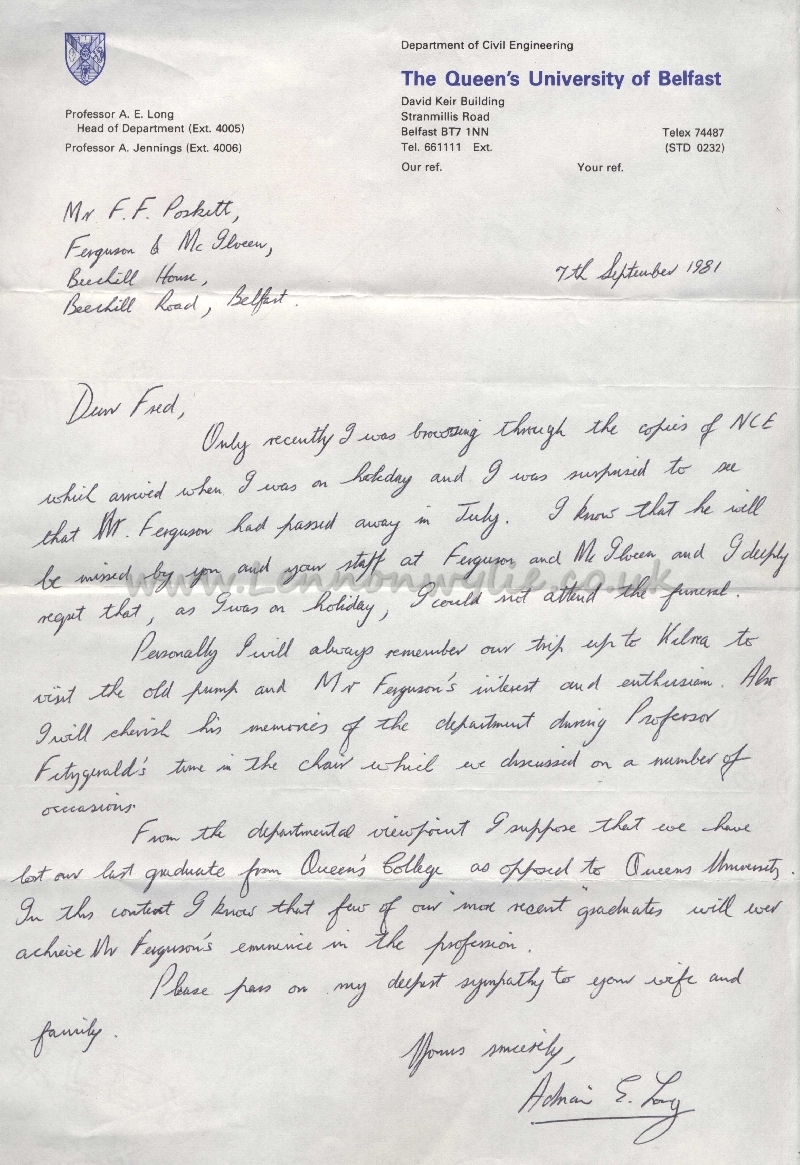 Department of Civil Engineering
The Queen's University of Belfast
Professor A. E. Long
Head of Department (Ext. 4005)
Professor A. Jennings (Ext. 4006)
David Keir Building
Stranmillis Road
Belfast BT7 1NN
Tel. 661111 Ext.
Telex 74487
(STD 0232)
Our ref.
Your ref.
Mr F. F. Poskett,
Ferguson & McIlveen,
Beechill House,
Beechill Road, Belfast.
7th September 1981
Dear Fred,
Only recently I was browsing through the copies of NCE
which arrived when I was on holiday and I was surprised to see
that Mr. Ferguson had passed away in July. I know that he will
be missed by you and your staff at Ferguson and McIlveen and I deeply
regret that, as I was on holiday, I could not attend the funeral.
www.Lennonwylie.co.uk
Personally I will always remember our trip up to Kilrea to
visit the old pump and Mr Ferguson's interest and enthusiasm. Also
I will cherish his memories of the department during Professor
Fitzgerald's time in the chair which we discussed on a number of
occasions.
From the departmental viewpoint I suppose that we have
lost our last graduate from Queen's College as opposed to Queens University.
In this context I know that few of our "more recent" graduates will ever
achieve Mr Ferguson's eminence in the profession.
Please pass on my deepest sympathy to your wife and
family.
Yours sincerely,
Adrian E. Long